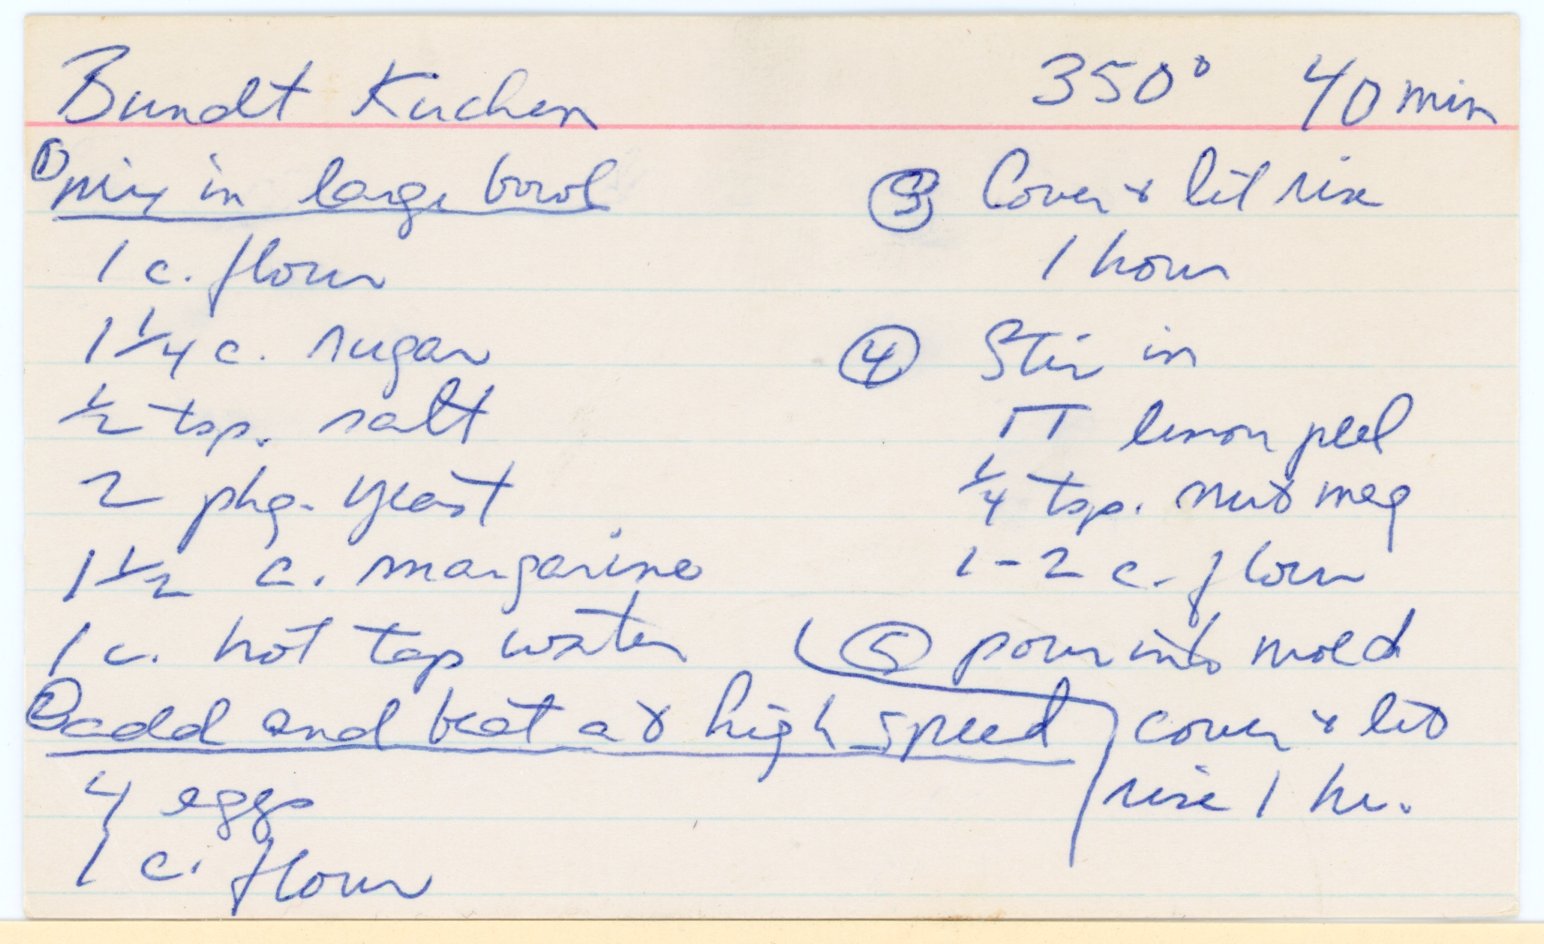 Bundt Kuchen 350° 40 min
① mix in large bowl
1 c. flour
1 1/4 c. sugar
1/2 tsp. salt
2 pkg. yeast
1 1/2 c. margarine
1 c. hot tap water
② add and beat at high speed
4 eggs
1 c. flour
③ Cover & let rise
1 hour
④ Stir in
1T lemon peel
1/4 tsp. nutmeg
1-2 c. flour
⑤ pour into mold
cover & let
rise 1 hr.